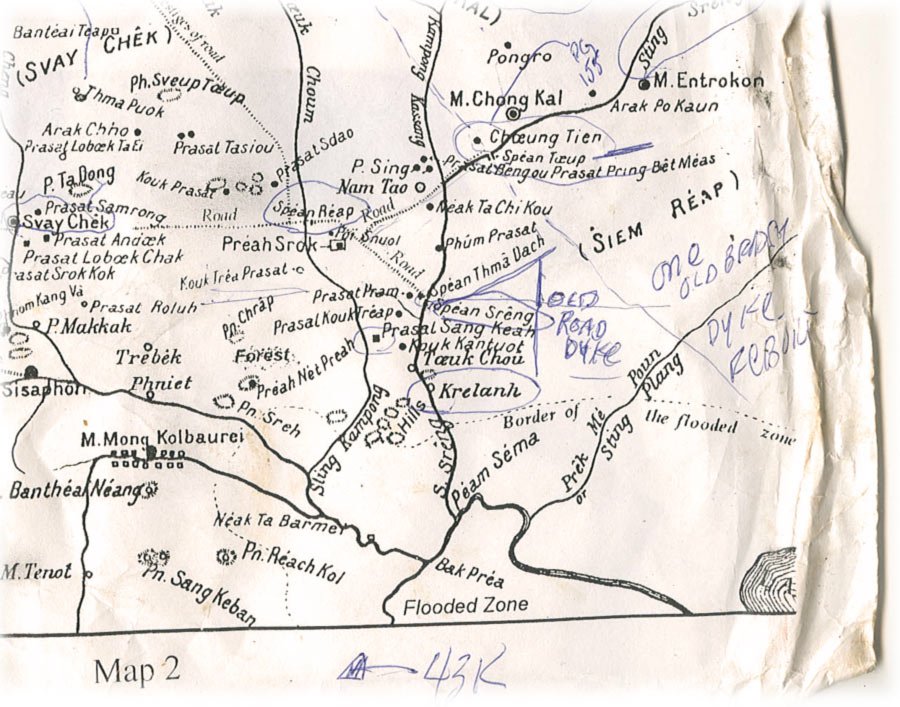 Bantéai Teapu
(SVAY CHÊK)
stages of road
Kampong Kasang
Stung
Sreng
Pongro
PG
155
M. Entrokon
Ph. Sveup Tœup
Thma Puok
M. Chong Kal
Arak Po Kaun
Choum
Arak Chho
Prasat Lobœk Ta Ei
Prasat Tasiou
Prasat Sdao
Chœung Tien
Spéan Tœup
P. Sing
Prasat Bengou Prasat Pring Bêt Méas
P. Ta Dong
Kouk Prasat
Nam Tao
Prasat Samrong
Road
Spéan Réap
Road
Néak Ta Chi Kou
Svay Chêk
(SIEM RÉAP)
Prasat Andœk
Préah Srok
Poï Snuol
Phúm Prasat
Prasat Lobœk Chak
Prasat Srok Kok
Kouk Tréa Prasat
Road
Spéan Thmâ Dach
ONE
OLD BRIDGE
Prasat Pram
Spéan Srêng
OLD
ROAD
DYKE
Prasat Roluh
Pn. Chrâp
Prasat Kouk Tréap
Prasat Sang Keah
DYKE
REBUILT
P. Makkak
Kouk Kantuot
Trêbêk
Forest
Tœuk Chou
Sisaphon
Phniet
Préah Net Préah
Krelanh
Pn. Sreh
Border of the flooded zone
Hills
M. Mong Kolbaurei
Sting Kampong
S. Srêng
Péam Séma
Prêk Mé Poun
or Sting Plang
Banthéai Néang
Néak Ta Barmei
M. Tenot
Pn. Sang Keban
Pn. Réach Kol
Bak Préa
Flooded Zone
Map 2
43K